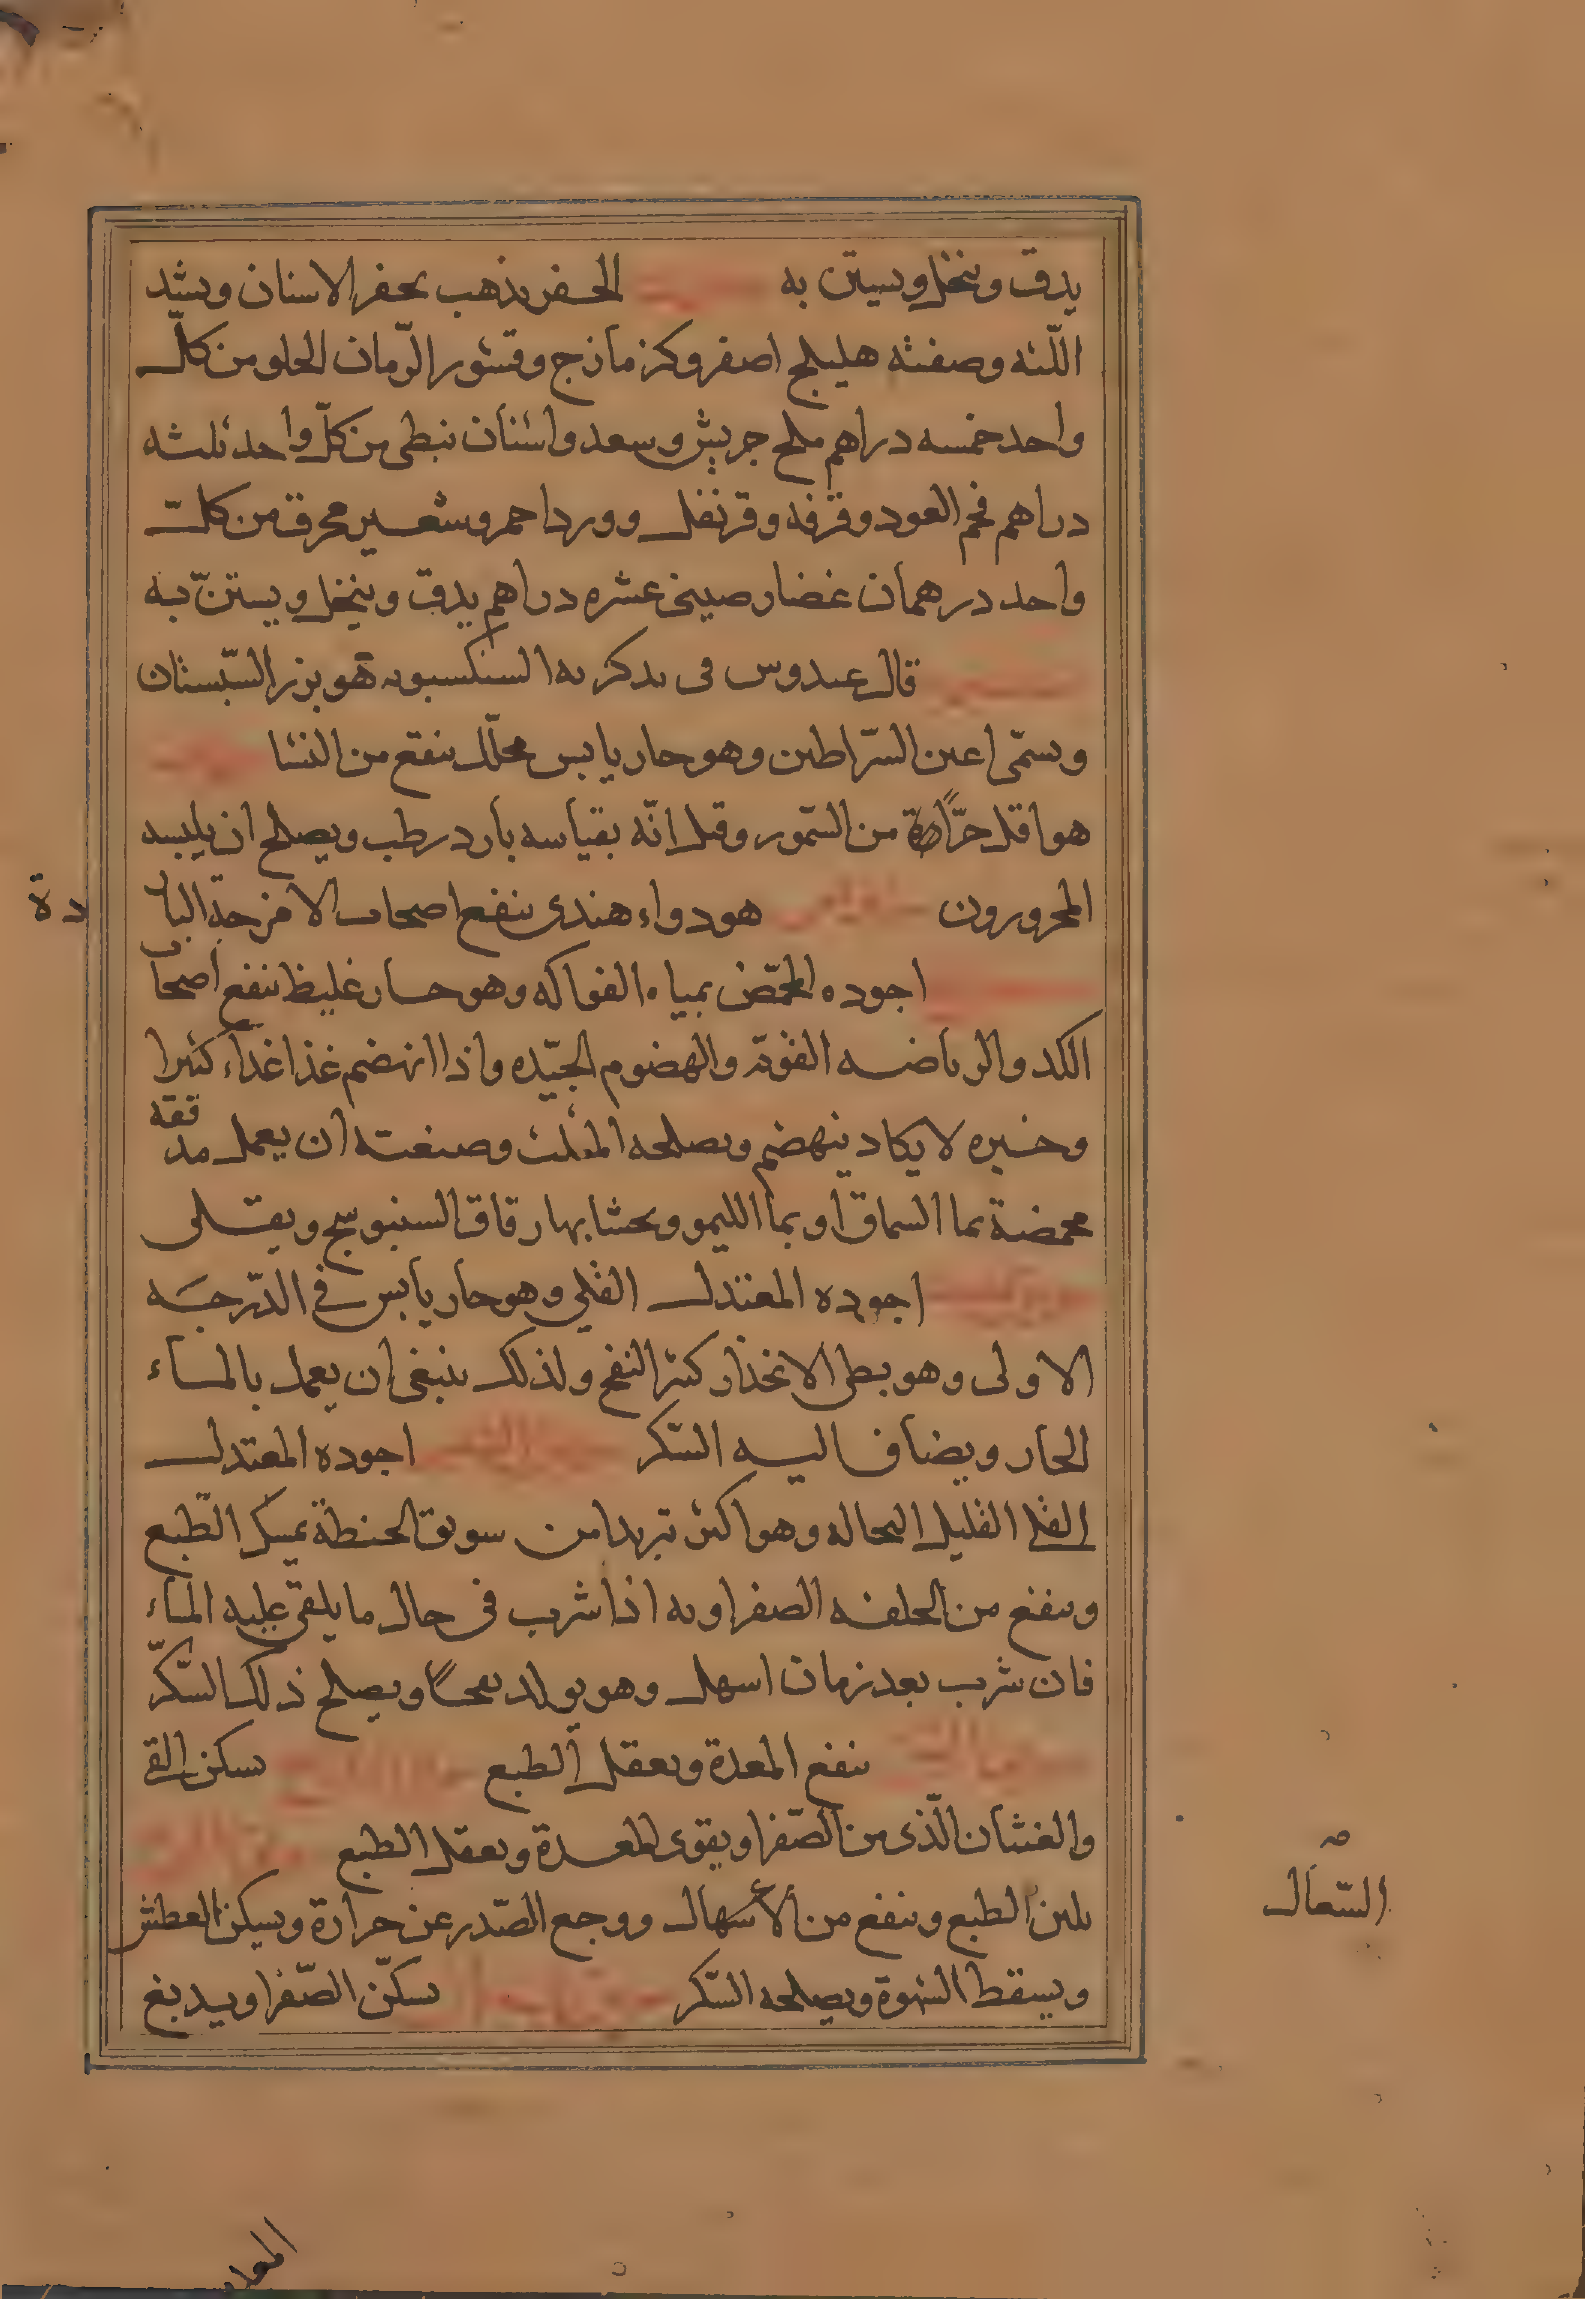 يدق وينخل ويستن به الحفر يذهب بحفر الاسنان ويشد
اللّثه وصفته هليلج اصفر وكزمازج وقشور الرّمان الحلو من كلّ
واحد خمسه دراهم ملح جريش وسعد واشنان نبطى من كلّ واحد ثلثه
دراهم فحم العود وقرفه وقرنفل وورد احمر وشعير محرق من كل
واحد درهمان غضار صينى عشره دراهم يدق وينخل ويستنّ به
قال عبدوس فى تذكرته السنكسبويه هو بزر السّبستان
ويسمّى اعين السّراطين وهو حار يابس محلّل ينفع من النسا
هو اقل حرّاً من السّمور وقيل انّه بقياسه بارد رطب ويصلح ان يلبسه
المحرورون هو دواء هندى ينفع اصحاب الامزجة البا
ردة
اجوده المحمّض بمياه الفواكه وهو حار غليظ ينفع اصحاب
الكد والرياضه القويّة والهضوم الجيّده واذا انهضم غذا غذاء كثيرا
وخبزه لا يكاد ينهضم ويصلحه المثلث وصنعته ان يعمل مدققه
محمضة بما السماق او بما الليمو ويحشا بها رقاق السنبوسج ويقلى
اجوده المعتدل القلى وهو حار يابس فى الدّرجه
الاولى وهو بطى الانحدار كثير النفخ ولذلك ينبغى ان يعمل بالماء
الحار ويضاف اليه السّكر اجوده المعتدل
القلى القليل النخاله وهو اكثر تبريدا من سويق الحنطة يمسك الطّبع
وينفع من الخلفه الصفراويه اذا شرب فى حال ما يلقى عليه الماء
فان شرب بعد زمان اسهل وهو يولد نفخاً ويصلح ذلك السّكّر
ينفع المعدة ويعقل الطبع يسكن القى
والغثيان الّذى من الصّفرا ويقوى المعدة ويعقل الطبع
يلين الطبع وينفع من الاسهال ووجع الصّدر عن حرارة ويسكن العطش
السّعال
ويسقط الشهوة ويصلحه السّكر يسكّن الصّفرا ويدبغ